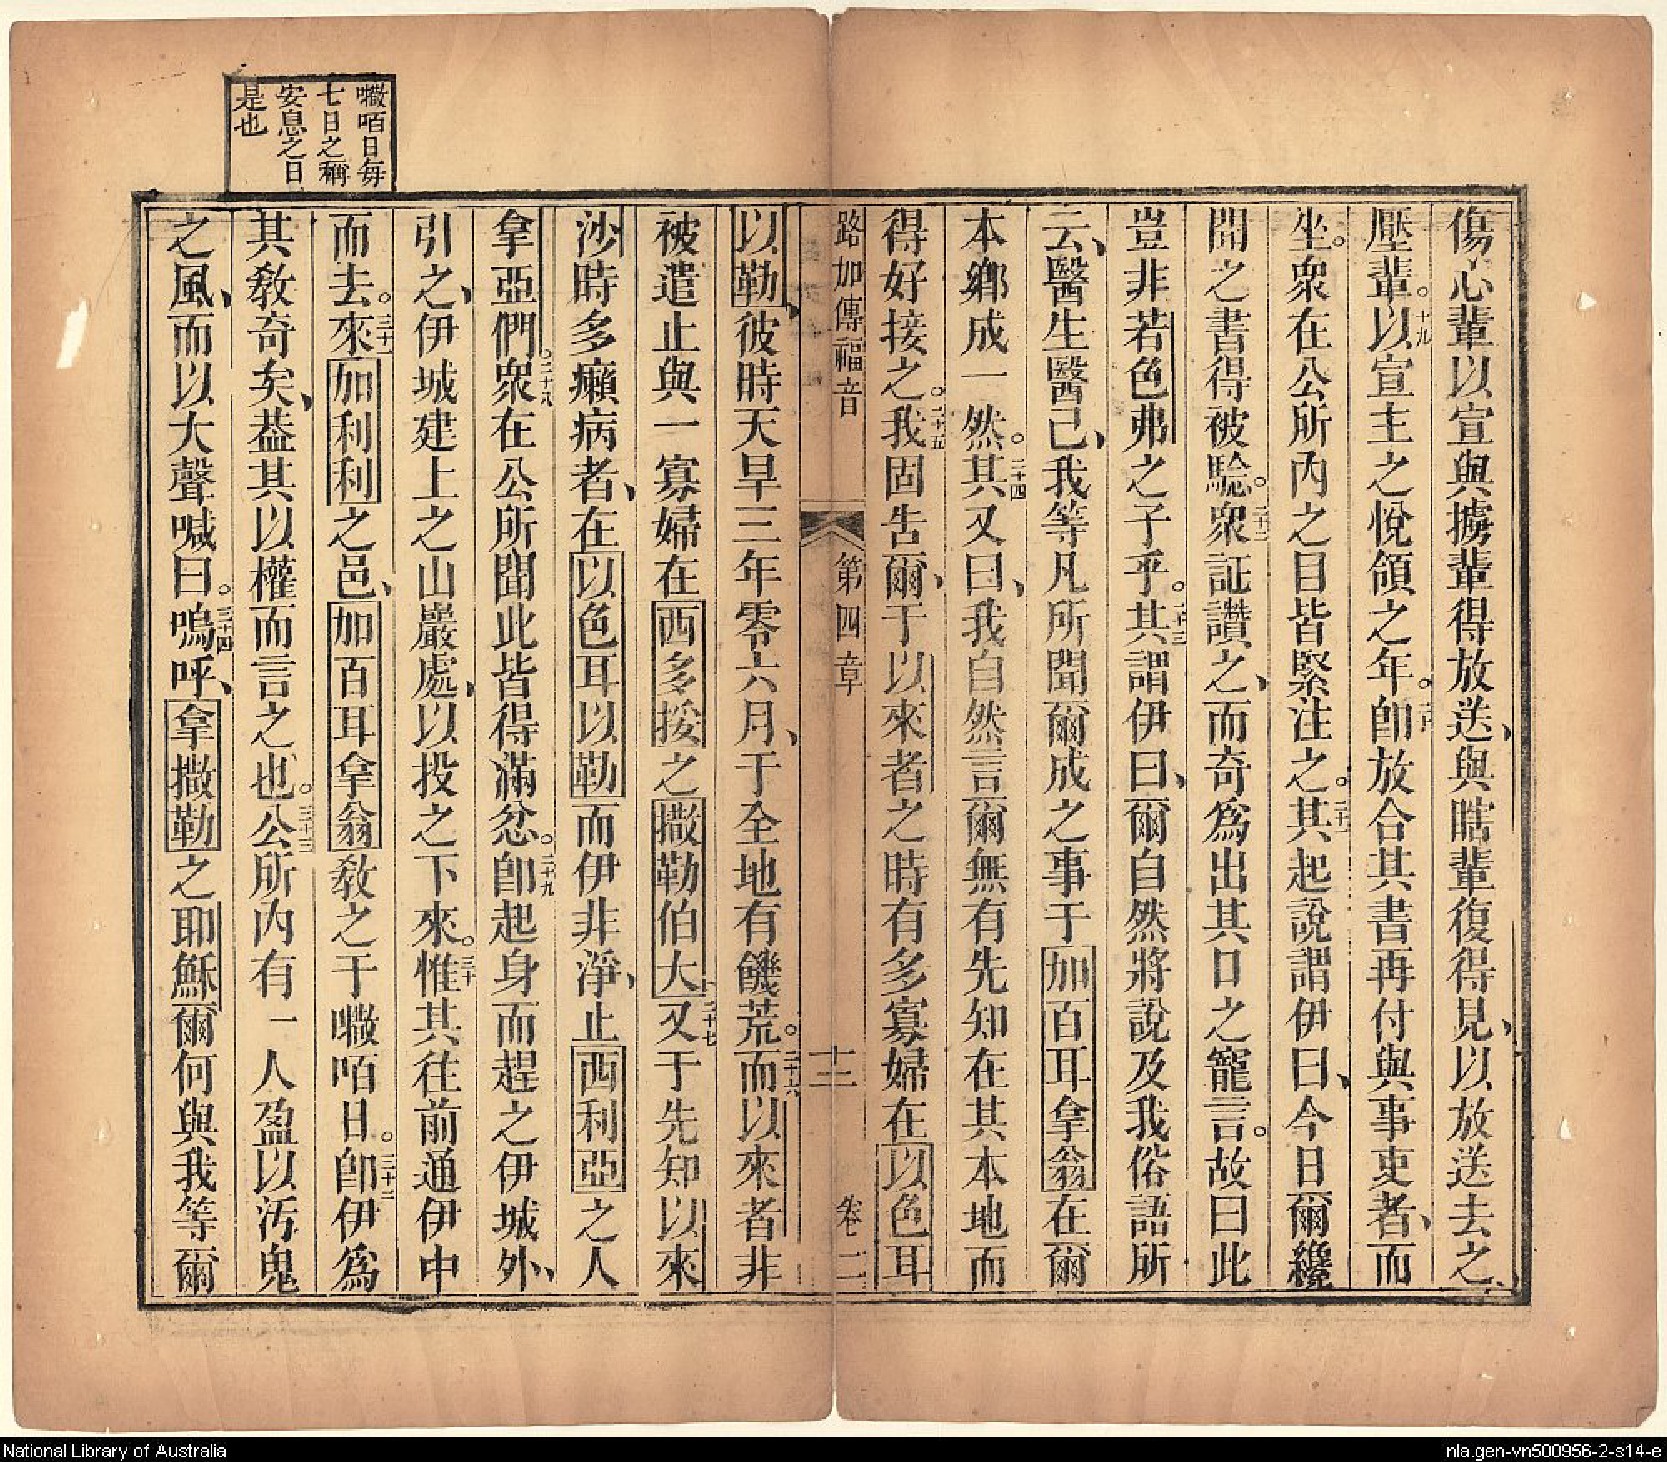 傷心輩以宣與擄輩得放送、與瞎輩復得見、以放送去之、
壓輩。十九以宣主之悅領之年。二十卽放合其書再付與事吏者、而
坐。衆在公所內之目皆緊注之。二十一其起說謂伊曰、今日爾纔
聞之書得被驗。二十二衆証讚之、而奇爲出其口之寵言。故曰此
豈非若色弗之子乎。二十三其謂伊曰、爾自然將說及我俗語所
云、醫生醫己、我等凡所聞爾成之事于加百耳拿翁在爾
本鄉成一然。二十四其又曰、我自然言爾無有先知在其本地而
得好接之。二十五我固告爾、于以來者之時有多寡婦在以色耳
路加傳福音 第四章 十三 卷二
以勒、彼時天旱三年零六月、于全地有饑荒。二十六而以來者非
被遣止與一寡婦在西多挼之撒勒伯大二十七又于先知以來
沙時多癩病者、在以色耳以勒而伊非淨、止西利亞之人
拿亞們。二十八衆在公所聞此皆得滿忿。二十九卽起身而趕之伊城外、
引之、伊城建上之山巖處、以投之下來。三十惟其往前通伊中
而去。三十一來加利利之邑、加百耳拿翁敎之于𡂡咟日。三十二卽伊爲
其敎奇矣、葢其以權而言之也。三十三公所內有一人盈以汚鬼
之風、而以大聲喊曰。三十四嗚呼、拿撒勒之耶穌爾何與我等爾
𡂡咟日每
七日之稱
安息之日
是也
National Library of Australia
nla.gen-vn500956-2-s14-e